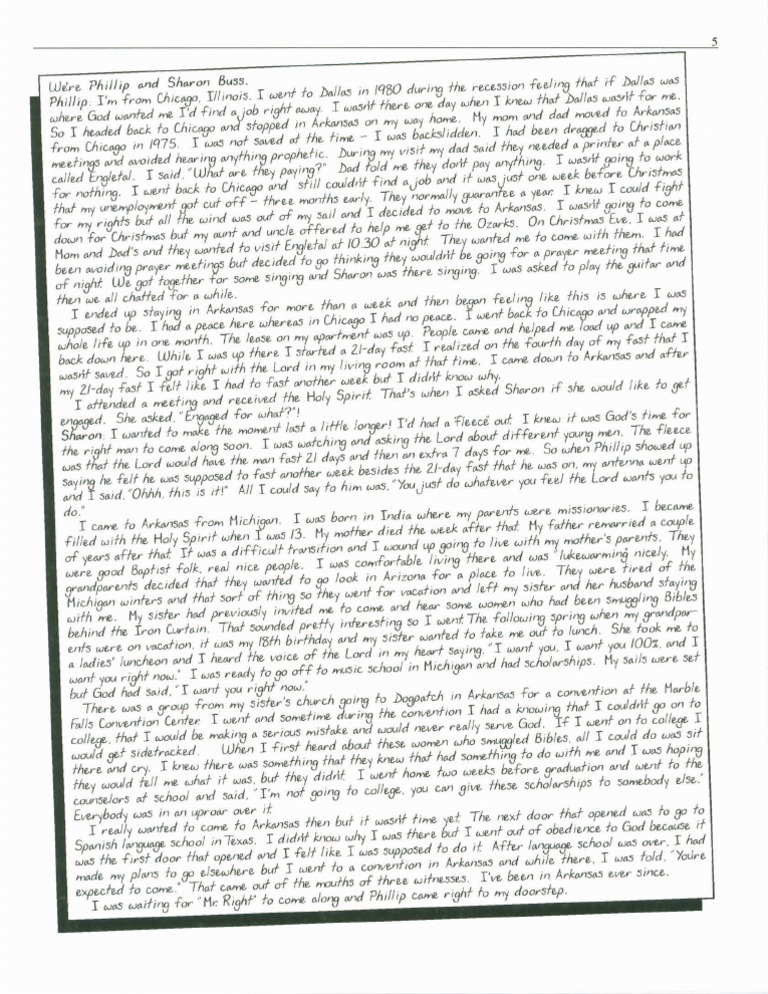 5
We're Phillip and Sharon Buss.
Phillip: I'm from Chicago, Illinois. I went to Dallas in 1980 during the recession feeling that if Dallas was
where God wanted me I'd find a job right away. I wasn't there one day when I knew that Dallas wasn't for me.
So I headed back to Chicago and stopped in Arkansas on my way home. My mom and dad moved to Arkansas
from Chicago in 1975. I was not saved at the time – I was backslidden. I had been dragged to Christian
meetings and avoided hearing anything prophetic. During my visit my dad said they needed a printer at a place
called Engletal. I said, "What are they paying?" Dad told me they don't pay anything. I wasn't going to work
for nothing. I went back to Chicago and still couldn't find a job and it was just one week before Christmas
that my unemployment got cut off – three months early. They normally guarantee a year. I knew I could fight
for my rights but all the wind was out of my sail and I decided to move to Arkansas. I wasn't going to come
down for Christmas but my aunt and uncle offered to help me get to the Ozarks. On Christmas Eve, I was at
Mom and Dad's and they wanted to visit Engletal at 10:30 at night. They wanted me to come with them. I had
been avoiding prayer meetings but decided to go thinking they wouldn't be going for a prayer meeting that time
of night. We got together for some singing and Sharon was there singing. I was asked to play the guitar and
then we all chatted for a while.
I ended up staying in Arkansas for more than a week and then began feeling like this is where I was
supposed to be. I had a peace here whereas in Chicago I had no peace. I went back to Chicago and wrapped my
whole life up in one month. The lease on my apartment was up. People came and helped me load up and I came
back down here. While I was up there I started a 21-day fast. I realized on the fourth day of my fast that I
wasn't saved. So I got right with the Lord in my living room at that time. I came down to Arkansas and after
my 21-day fast I felt like I had to fast another week but I didn't know why.
I attended a meeting and received the Holy Spirit. That's when I asked Sharon if she would like to get
engaged. She asked, "Engaged for what?"!
Sharon: I wanted to make the moment last a little longer! I'd had a 'fleece' out. I knew it was God's time for
the right man to come along soon. I was watching and asking the Lord about different young men. The fleece
was that the Lord would have the man fast 21 days and then an extra 7 days for me. So when Phillip showed up
saying he felt he was supposed to fast another week besides the 21-day fast that he was on, my antenna went up
and I said, "Ohhh, this is it!" All I could say to him was, "You just do whatever you feel the Lord wants you to
do."
I came to Arkansas from Michigan. I was born in India where my parents were missionaries. I became
filled with the Holy Spirit when I was 13. My mother died the week after that. My father remarried a couple
of years after that. It was a difficult transition and I wound up going to live with my mother's parents. They
were good Baptist folk, real nice people. I was comfortable living there and was "lukewarming" nicely. My
grandparents decided that they wanted to go look in Arizona for a place to live. They were tired of the
Michigan winters and that sort of thing so they went for vacation and left my sister and her husband staying
with me. My sister had previously invited me to come and hear some women who had been smuggling Bibles
behind the Iron Curtain. That sounded pretty interesting so I went. The following spring when my grandpar-
ents were on vacation, it was my 18th birthday and my sister wanted to take me out to lunch. She took me to
a ladies' luncheon and I heard the voice of the Lord in my heart saying, "I want you, I want you 100%, and I
want you right now." I was ready to go off to music school in Michigan and had scholarships. My sails were set
but God had said, "I want you right now."
There was a group from my sister's church going to Dogpatch in Arkansas for a convention at the Marble
Falls Convention Center. I went and sometime during the convention I had a knowing that I couldn't go on to
college, that I would be making a serious mistake and would never really serve God. If I went on to college I
would get sidetracked. When I first heard about these women who smuggled Bibles, all I could do was sit
there and cry. I knew there was something that they knew that had something to do with me and I was hoping
they would tell me what it was, but they didn't. I went home two weeks before graduation and went to the
counselors at school and said, "I'm not going to college, you can give these scholarships to somebody else."
Everybody was in an uproar over it.
I really wanted to come to Arkansas then but it wasn't time yet. The next door that opened was to go to
Spanish language school in Texas. I didn't know why I was there but I went out of obedience to God because it
was the first door that opened and I felt like I was supposed to do it. After language school was over, I had
made my plans to go elsewhere but I went to a convention in Arkansas and while there, I was told, "You're
expected to come." That came out of the mouths of three witnesses. I've been in Arkansas ever since.
I was waiting for "Mr. Right" to come along and Phillip came right to my doorstep.